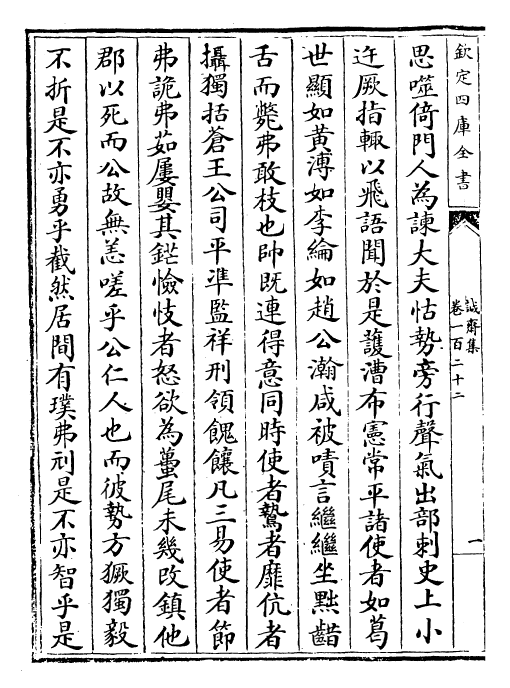 欽定四庫全書
誠齋集
卷一百二十二
一
思噬倚門人為諫大夫怙勢旁行聲氣出部刺史上小
迕厥指輙以飛語聞於是護漕布憲常平諸使者如葛
世顯如黄溥如李綸如趙公瀚咸被嘖言繼繼坐黜齰
舌而斃弗敢枝也帥既連得意同時使者騺者靡伉者
攝獨括蒼王公司平凖監祥刑領餽饟凡三易使者節
弗詭弗茹屢嬰其鋩憸忮者怒欲為蠆尾未幾改鎮他
郡以死而公故無恙嗟乎公仁人也而彼勢方獗獨毅
不折是不亦勇乎截然居間有璞弗刓是不亦智乎是